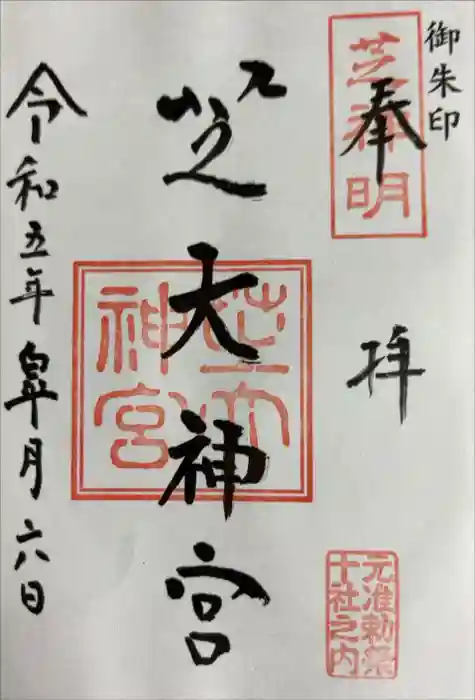 御朱印
芝神明
奉拝
元准勅祭
十社之内
芝大神宮
芝大神宮
令和五年皐月六日